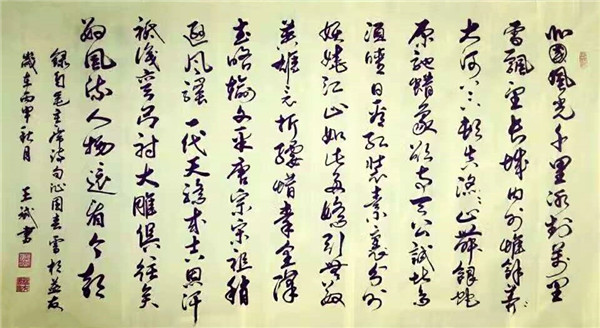 北國風光千里冰封萬里
雪飄望长城内外惟餘莽莽
大河上下頓失滔滔山舞銀蛇
原馳蜡象欲与天公試比高
須晴日看红裝素裹分外
妖娆江山如此多嬌引無數
英雄競折腰惜秦皇漢
武略輸文采唐宗宋祖稍
遜風騷一代天驕成吉思汗
祗識彎弓射大雕俱往矣
數風流人物還看今朝
錄自毛主席詩句沁园春雪於益友
歲在丙申秋月 王斌書